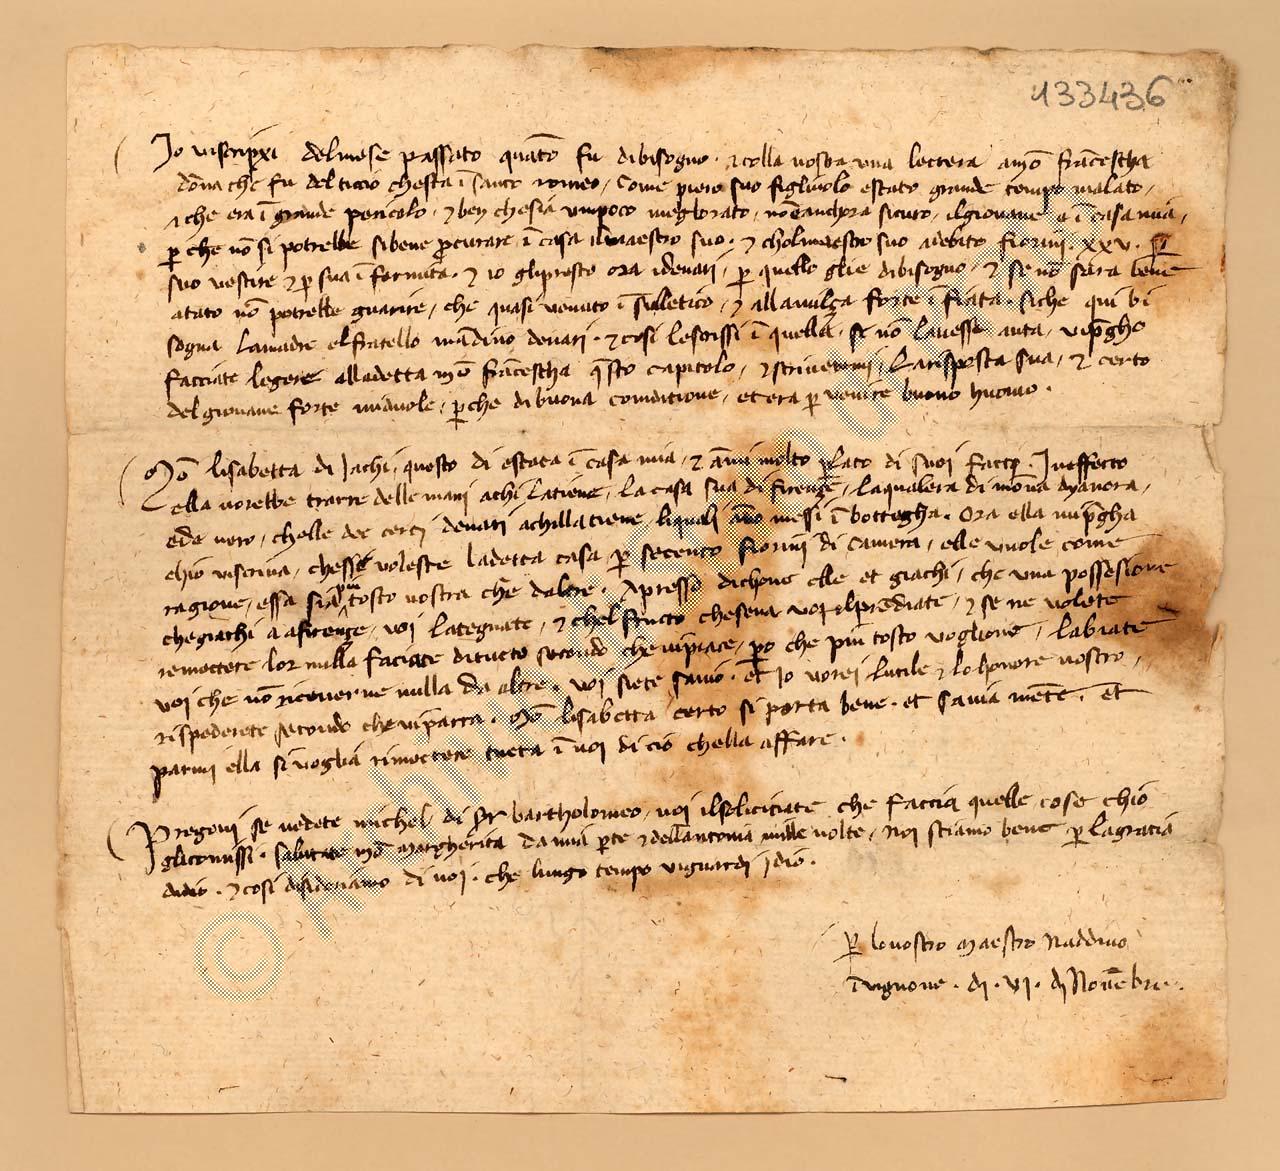 133436
Io viscripxi del mese passato quāto fu di bisogno · et colla vostra una lectera a mōa frācescha
dōna che fu del ticcio che sta ī santo romeo, Come piero suo figliuolo e stato grande tempo malato,
et che era ī grande pericolo, et ben che sia unpoco megliorato, nōe anchora sicuro, il giovane e ī casa mia,
perche nō si potrebbe si bene procurare ī casa il maestro suo · et chol maestro suo a debito fiorini · xxv · per
suo vestire et p sua īfermita · et io gli presto ora i denari, per quello glie di bisogno, et se nō sara bene
atato nō potrebbe guarire, che quasi venuto ī, et alla milça forte īfiata · siche qui bi
sogna la madre el fratello mādino denari · et cosi le scrissi ī quella, se nō l avesse auta, vi pgho
facciate legere alla detta mōa frācescha qsto capitolo, et scrivetemi la risposta sua, et certo
del giovane forte mi duole, pche di buona conditione, et era p venire buono huomo ·
Mōa lisabetta di Iachi, questo di e stata ī casa mia, et āmi molto plato di suoi facti · In effecto
ella vorebbe trarre delle mani a chi la tiene, la casa sua di firenze, la qual era di mōna dyanora,
ede vero, chelle dee certi denari a chi lla tiene, li quali āno messi ī bottegha · Ora ella mi pgha
chio vi scriva, chesse voleste la detta casa per secento fiorini di camera, elle vuole come
ragione, essa sia piu tosto vostra che daltre · Apresso dichono elle et giachi, che una possesione
che giachi a a firenze, voi la tegnate, et chel fructo che se na voi il prēdiate, et se ne volete
remectere lor nulla faciate di tucto secondo che vi piace, po che piu tosto vogliono, l abiate
voi che nō riceverne nulla da altre · Voi siete savio · et Io vorei l utile et lo honore vostro,
rispoderete secondo che vi parra · Mōa lisabetta certo si porta bene · et savia mēte · et
parmi ella si voglia rimectere tucta ī voi di cio chella affare ·
Pregovi se vedete michel di Ser bartholomeo, voi il soliciate che faccia quelle cose chio
gli comissi · salutate mōa Margherita da mia pte et dellantonia mille volte, Noi stiamo bene, per la gratia
didio · et cosi disideriamo di voi · che lungo tempo vi guardi Idio ·
per lo vostro Maestro Naddino
ī vignone · di · VI · di Novēbre ·